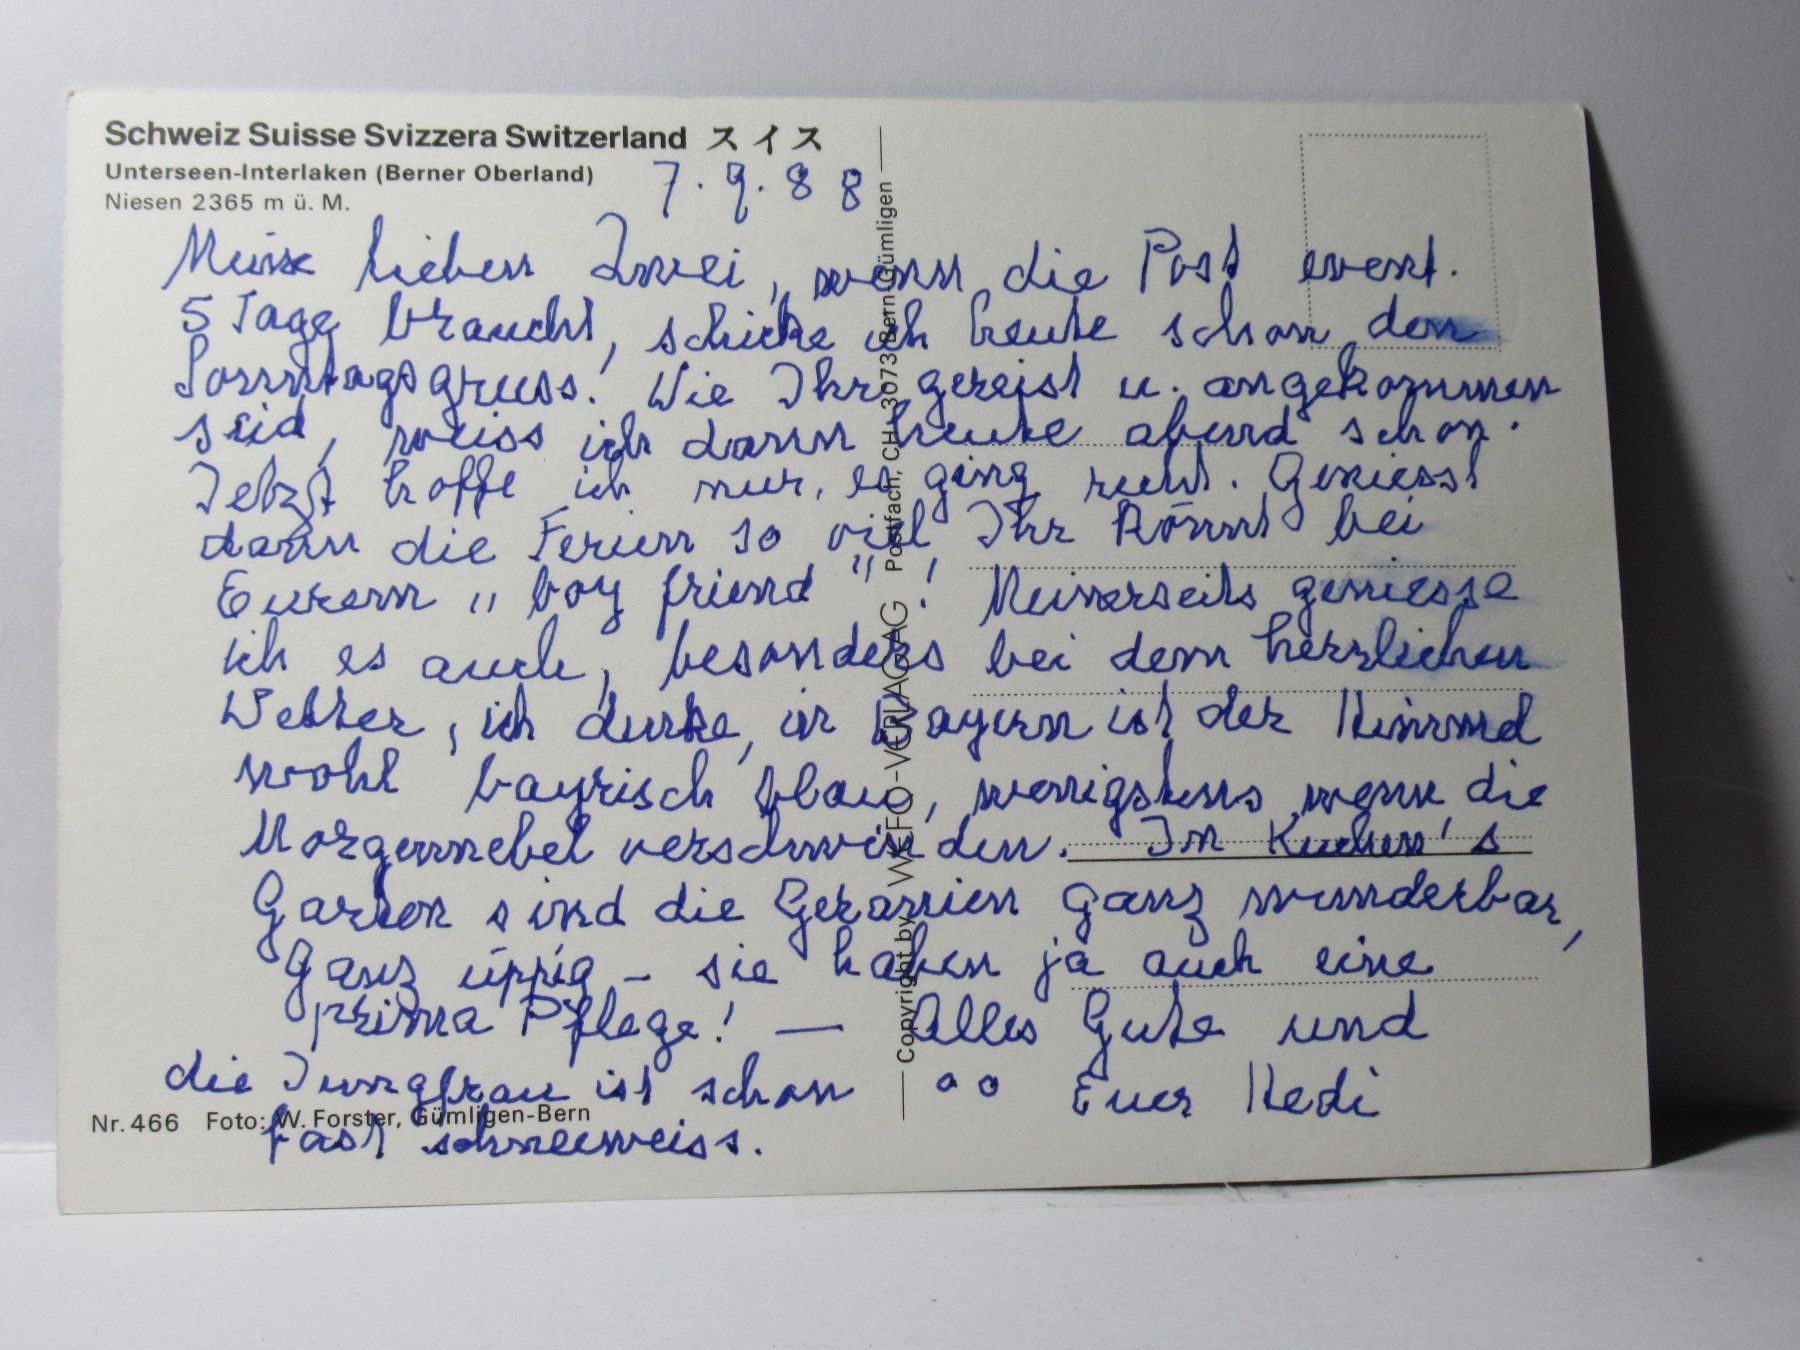 Schweiz Suisse Svizzera Switzerland スイス
Unterseen-Interlaken (Berner Oberland)
Niesen 2365 m ü. M.
7.9.88
Meine lieben Zwei, wenn die Post event.
5 Tage braucht, schicke ich heute schon den
Sonntagsgruss! Wie Ihr gereist u. angekommen
seid, weiss ich dann heute abend schon.
Jetzt hoffe ich nur, es ging recht. Geniesst
dann die Ferien so viel Ihr könnt bei
Eurem "boy friend"! Meinerseits geniesse
ich es auch, besonders bei dem herrlichen
Wetter, ich denke, in Bayern ist der Himmel
wohl bayrisch blau, wenigstens wenn die
Morgennebel verschwinden. In Kuchen's
Garten sind die Geranien ganz wunderbar,
ganz üppig – sie haben ja auch eine
prima Pflege! — Alles Gute und
die Jungfrau ist schon °° Euer Hedi
fast schneeweiss.
Nr. 466 Foto: W. Forster, Gümligen-Bern
Copyright by WEFO-VERLAG AG Postfach, CH-3073 Bern-Gümligen